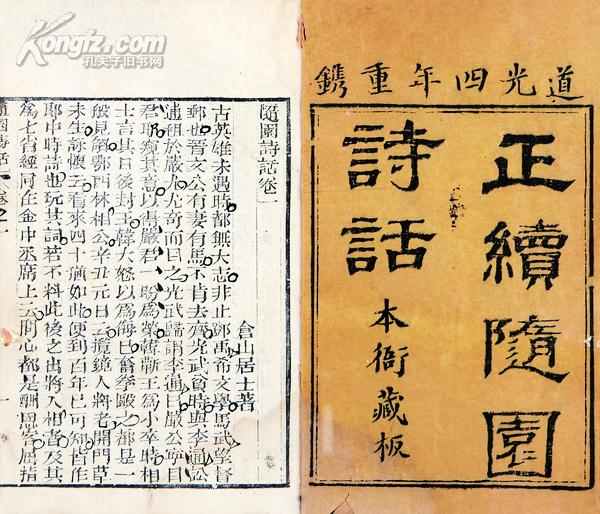 道光四年重鐫
正續隨園
詩話
本衙藏板
隨園詩話卷一
倉山居士著
古英雄未遇時都無大志非止鄧禹希文學馬武望督
郵也晉文公有妻有馬不肯去齊光武貧時與李通訟
逋租於嚴尤尤奇而目之光武歸謂李通曰嚴公寧目
君耶窺其意以得嚴君一盼為榮韓蘄王為小卒時相
士言其日後封王韓大怒以為侮己奮拳毆之都是一
般見解鄂西林相公辛丑元日云攬鏡人將老開門草
未生詠懷云看來四十猶如此便到百年已可知皆作
郎中時詩也玩其詞若不料此後之出將入相者及其
為七省經同在金中丞席上云問心都是酬恩客屈指
Kongfz.com
孔夫子旧书网